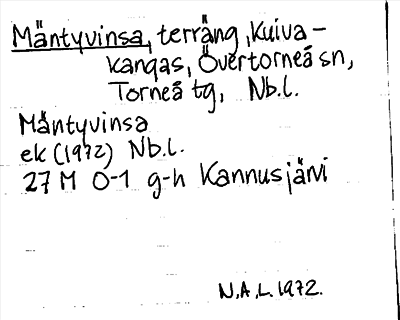 Mäntyvinsa, terräng, Kuiva-
kangas, Övertorneå sn,
Torneå tg, Nb.l.
Mäntyvinsa
ek (1972) Nb.l.
27 M 0-1 g-h Kannusjärvi
N.A.L. 1972.